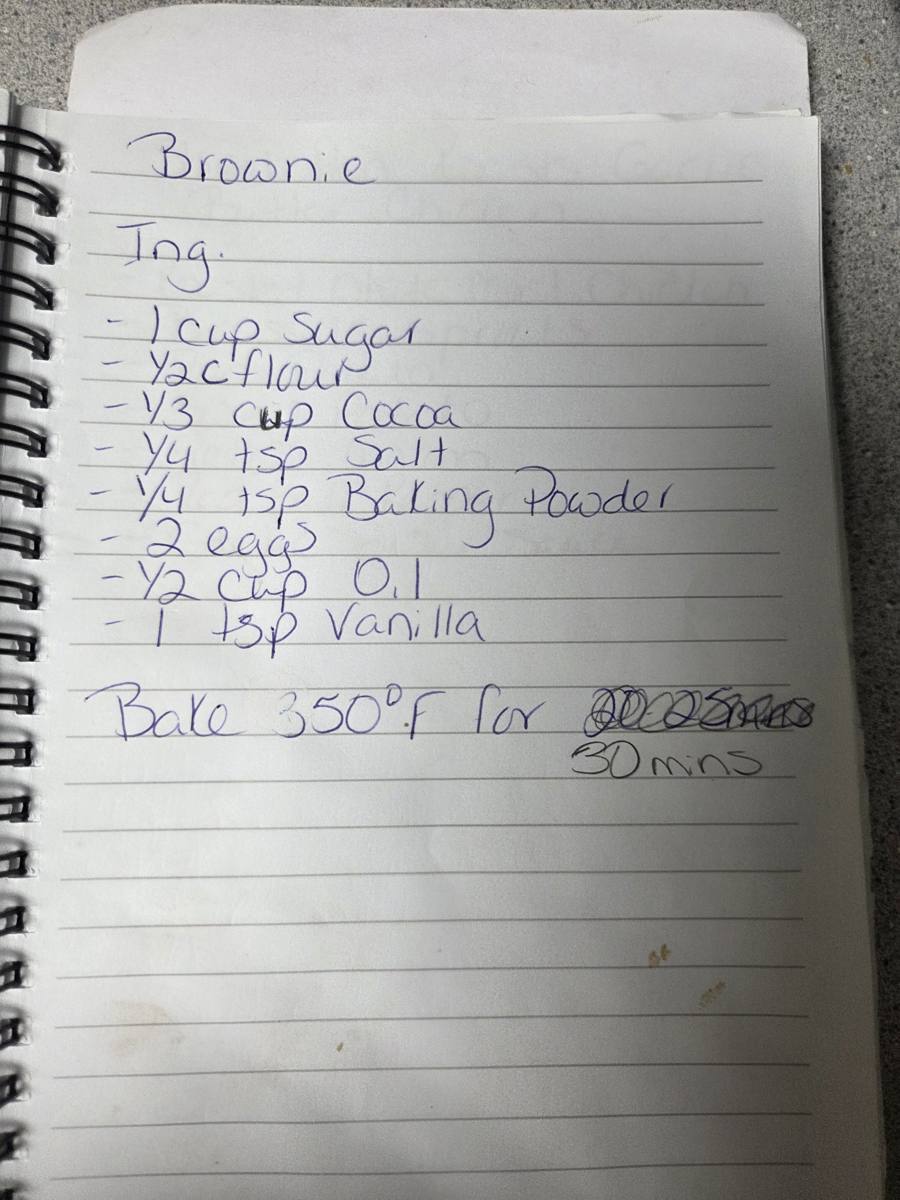 Brownie
Ing.
- 1 cup Sugar
- 1/2 c flour
- 1/3 cup Cocoa
- 1/4 tsp Salt
- 1/4 tsp Baking Powder
- 2 eggs
- 1/2 cup Oil
- 1 tsp Vanilla
Bake 350°F for
30 mins